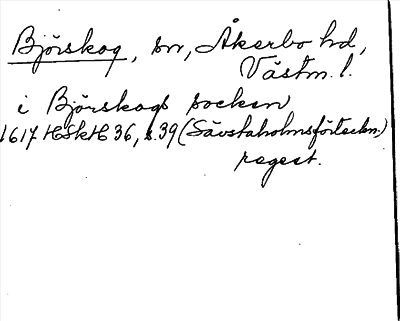 Björskog, sn, Åkerbo hd,
Västm. l.
i Björskogs socken
1617 HSkH 36, s. 39 (Sävstaholmsförteckn.)
regest.